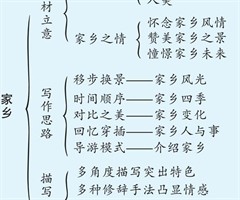 人美
材立意
怀念家乡风情
家乡之情
赞美家乡之景
憧憬家乡未来
家乡
写作思路
移步换景——家乡风光
时间顺序——家乡四季
对比之美——家乡变化
回忆穿插——家乡人与事
导游模式——介绍家乡
描写
多角度描写突出特色
多种修辞手法凸显情感